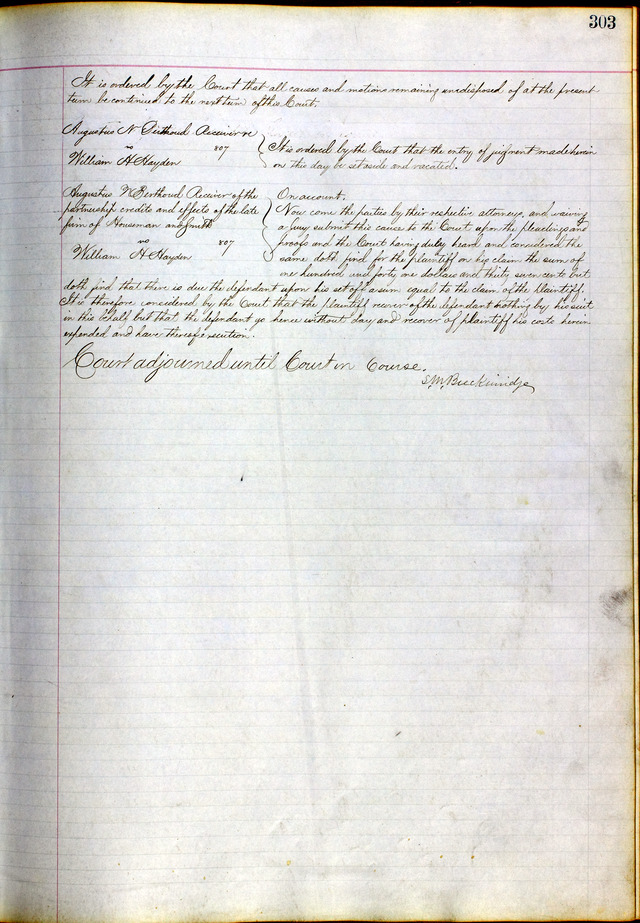 303
It is ordered by the Court that all causes and motions remaining undisposed of at the present
term be continued to the next term of this Court.
Augustus N Berthoud Receiver vc
vs 807
William H Hayden
It is ordered by the Court that the entry of judgment made herein
on this day be set aside and vacated.
Augustus N Berthoud Receiver of the
partnership credits and effects of the late
firm of Housman and Smith
vs 807
William H Hayden
On account.
Now come the parties by their respective attorneys, and waiving
a jury submit this cause to the Court upon the pleadings and
proofs and the Court having duly heard and considered the
same doth find for the plaintiff on his claim the sum of
one hundred and forty one dollars and thirty seven cents but
doth find that there is due the defendant upon his set off a sum equal to the claim of the plaintiff;
It is therefore considered by the Court that the plaintiff recover of the defendant nothing by his suit
in this behalf but that the defendant go hence without day and recover of plaintiff his costs herein
expended and have therefor execution.
Court adjourned until Court in Course.
S. M. Breckinridge